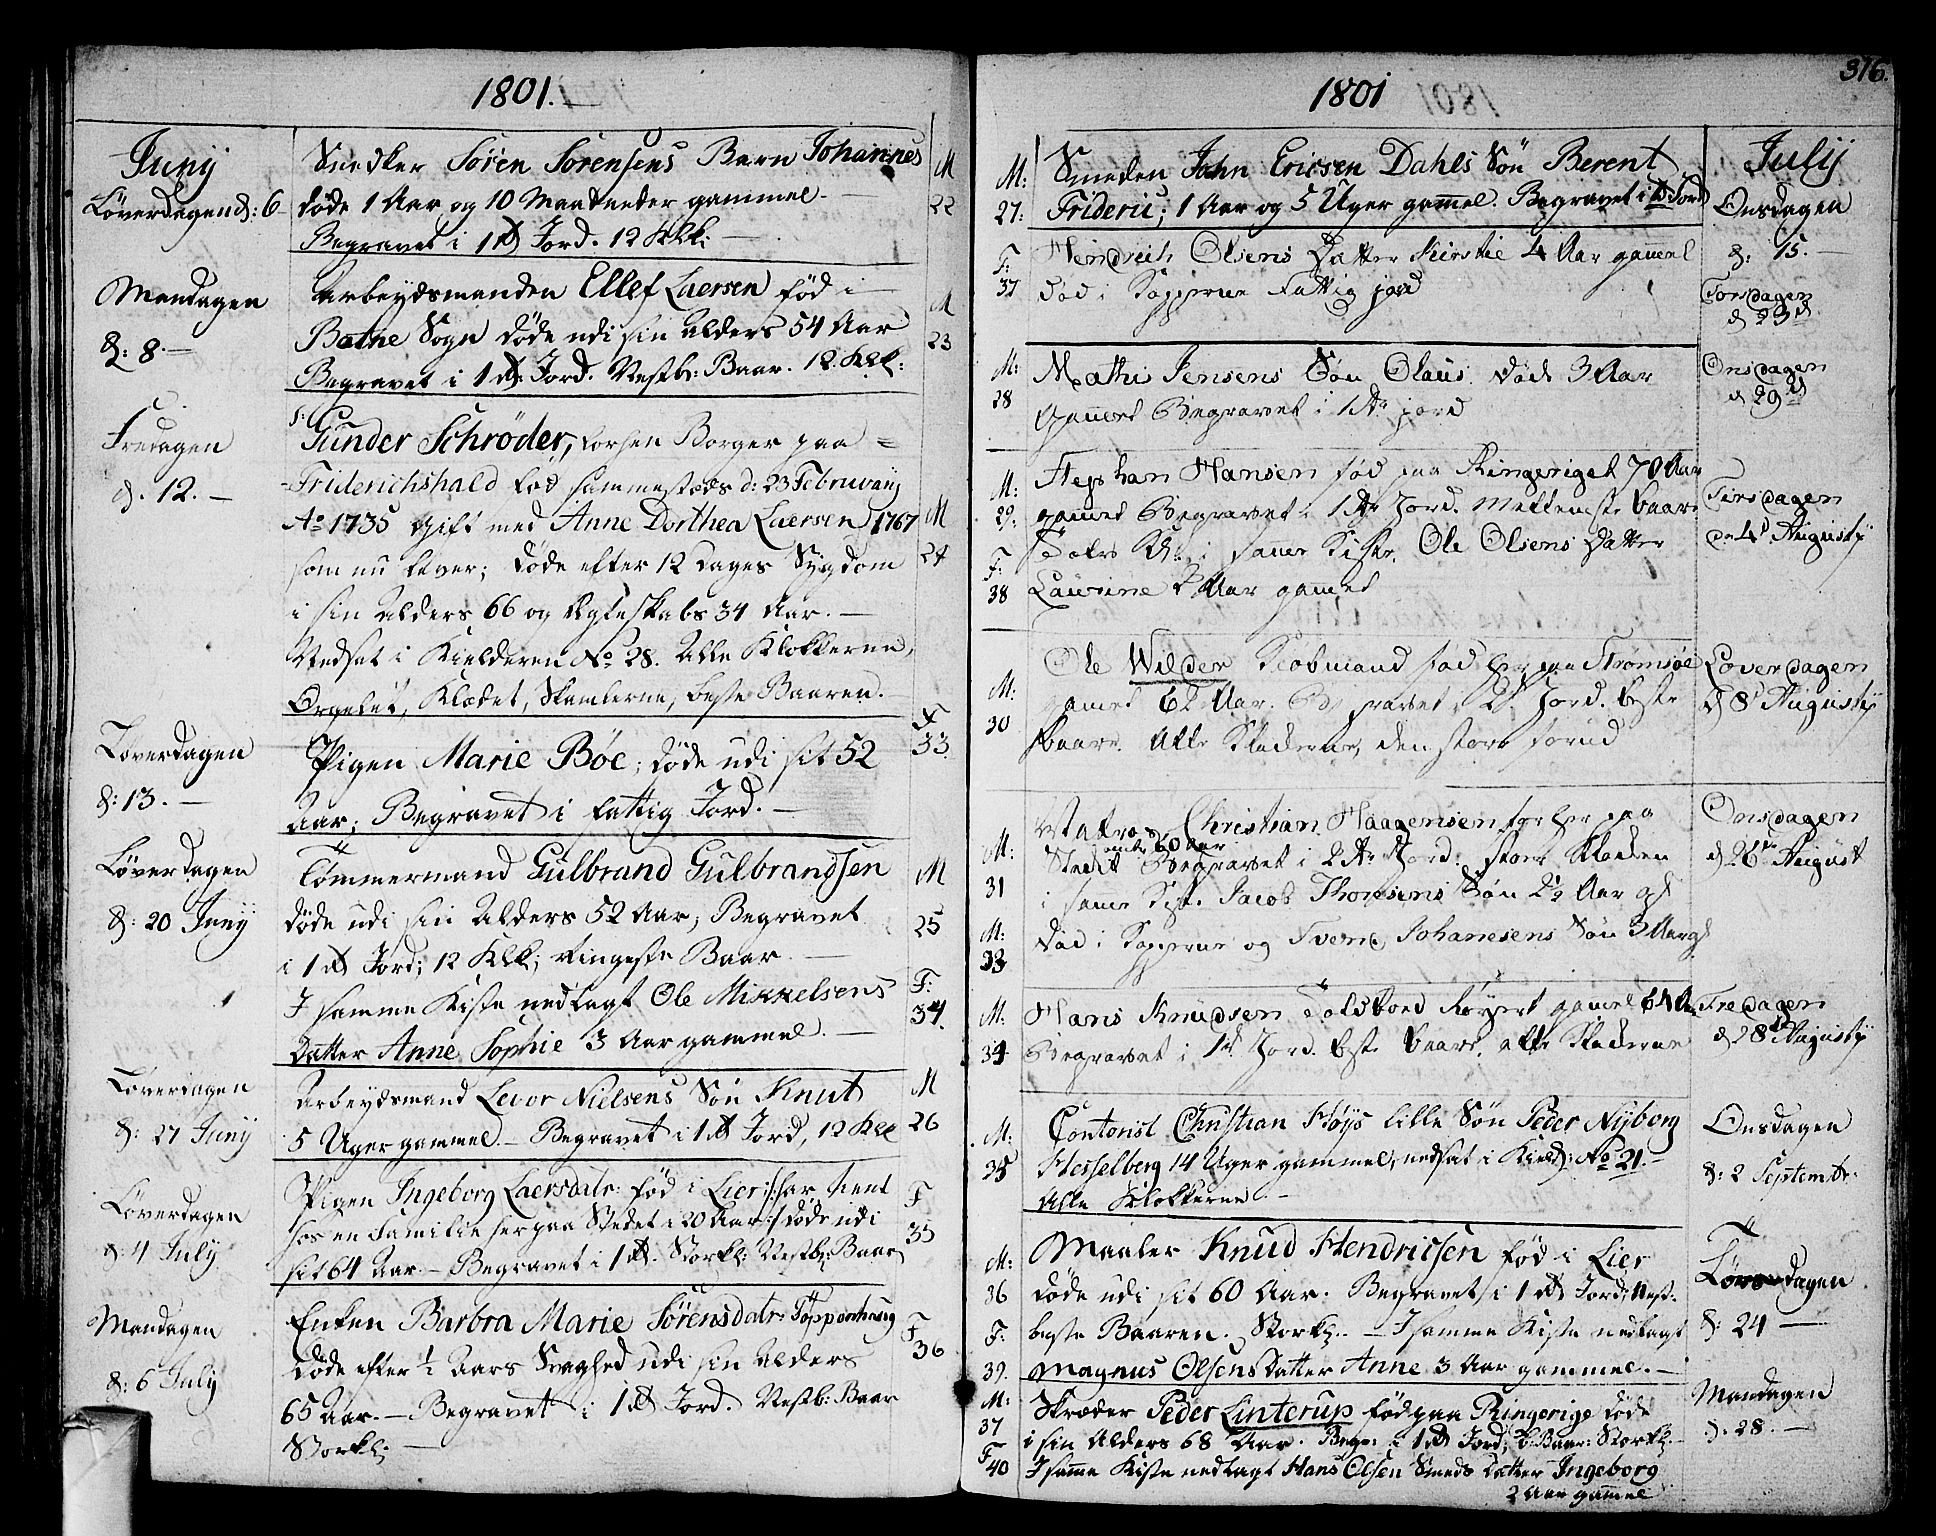 1801.
Juny
Løverdagen d: 6
Snedker Sören Sörensens Barn Johannes
døde 1 Aar og 10 Maaneder gammel.
Begravet i 1ste Jord. 12 Klk:
M
22
Mandagen
d: 8.
Arbeydsmanden Ellef Laersen fød i
Sogn døde udi sin Alders 54 Aar
Begravet i 1ste Jord. Nestb: Baar. 12 Klk:
M
23
Fredagen
d. 12.
Gunder Schröder, forhen Borger paa
Friderichshald fød sammesteds d: 23 February
Ao 1735 gift med Anne Dorthea Laersen 1767
som nu lever; døde efter 12 Dages Sygdom
i sin Alders 66 og Egteskabs 34 Aar.
Nedsat i Kielderen No 28. Alle Klokkerne,
Orgelet, Klædet, Skamlerne, beste Baaren.
M
24
Loverdagen
d: 13.
Pigen Marie Böe; døde udi sit 52
Aar; Begravet i fattig Jord.
F
33
Løverdagen
d: 20 Juny
Tømmermand Gulbrand Gulbrandsen
døde udi sin Alders 52 Aar; Begravet
i 1ste Jord; 12 Klk; ringeste Baar.
I samme Kiste nedlagt Ole Mikkelsens
Datter Anne Sophie 3 Aar gammel.
M
25
F:
34.
Loverdagen
d: 27 Juny
Arbeydsmand Levor Nielsens Søn Knut
5 Uger gammel. Begravet i 1ste Jord, 12 Klk
M
26
Løverdagen
d: 4 July
Pigen Ingeborg Laersdatr: fød i Lier /: har tient
hos en Familie her paa Stedet i 20 Aar :/ døde udi
sit 64 Aar. Begravet i 1ste. Storkl: Nestb: Baar
F
35
Mandagen
d: 6 July
Enken Barbra Marie Sörensdatr:
døde efter 1/2 Aars Svaghed udi sin Alders
65 Aar. Begravet i 1ste Jord. Nestb: Baar
Storkl:
F
36
1801
376.
M:
27:
Smeden John Ericsen Dahls Søn Berent
Frideric; 1 Aar og 5 Uger gammel. Begravet i 1ste Jord
July
Onsdagen
d: 15.
F:
37
Hendrich Olsens Datter Kirstie 4 Aar gamel
død i Kopperne Fattig jord
Torsdagen
d 23d
M:
28
Mathis Jensens Søn Olaus. død 3 Aar
gamel Begravet i 1ste jord
Onsdagen
d 29de
M:
29:
Stephan Hansen fød paa Ringeriget 70 Aar
gamel Begravet i 1ste Jord. Mellemste baare
i samme Kiste. Ole Olsens Datter
Laurine Aar gamel
F:
38
Tirsdagen
4d Augusty
M:
30
Ole Wilder Kiøbmand fød her paa Strømsøe
gamel 62 Aar. Begravet i 2d Jord. beste
baare. Alle Kladerne, den store forud
Loverdagen
d 8d Augusty
M:
31
Matros Christian Haagensen her paa
60 Aar
Stedet Begravet i 2de Jord. store Kladen
i samme Kiste Jacob Thomsens Søn 2½ Aar gl
død i Kopperne og Svend Johanesens Søn 3 Aar gl
M:
33
Onsdagen
d 26de August
M:
34
Hans Knudsen Toldbod Røyert gamel 64 Aar
Begravet i 1st. Jord. beste baare. alle Kladerne
Fredagen
d 28de Augusty
M:
35
Contorist Christian Höys lille Søn Peder Nyborg
Hesselberg 14 Uger gammel, nedsat i Kield: No 21.
Alle Klokkerne.
Onsdagen
d: 2 Septembr:
M:
36
Maaler Knud Hendricsen fød i Lier
døde udi sit 60 Aar. Begravet i 1ste Jord; Nest-
beste Baaren. Storkl. I samme Kiste nedlagt
Magnus Olsens Datter Anne 3 Aar gammel.
F:
39.
dagen
d: 24
M:
37
Skræder Peder Linterup fød paa Ringerige døde
i sin Alders 68 Aar. Begr: i 1ste Jord; b: Baar: Storkl.
I samme Kiste nedlagt Hans Olsen Smeds Datter Ingeborg
2 Aar gammel
F
40
Mandagen
d: 28.